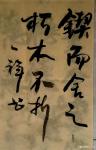 鍥而舍之
朽木不折
一諱书